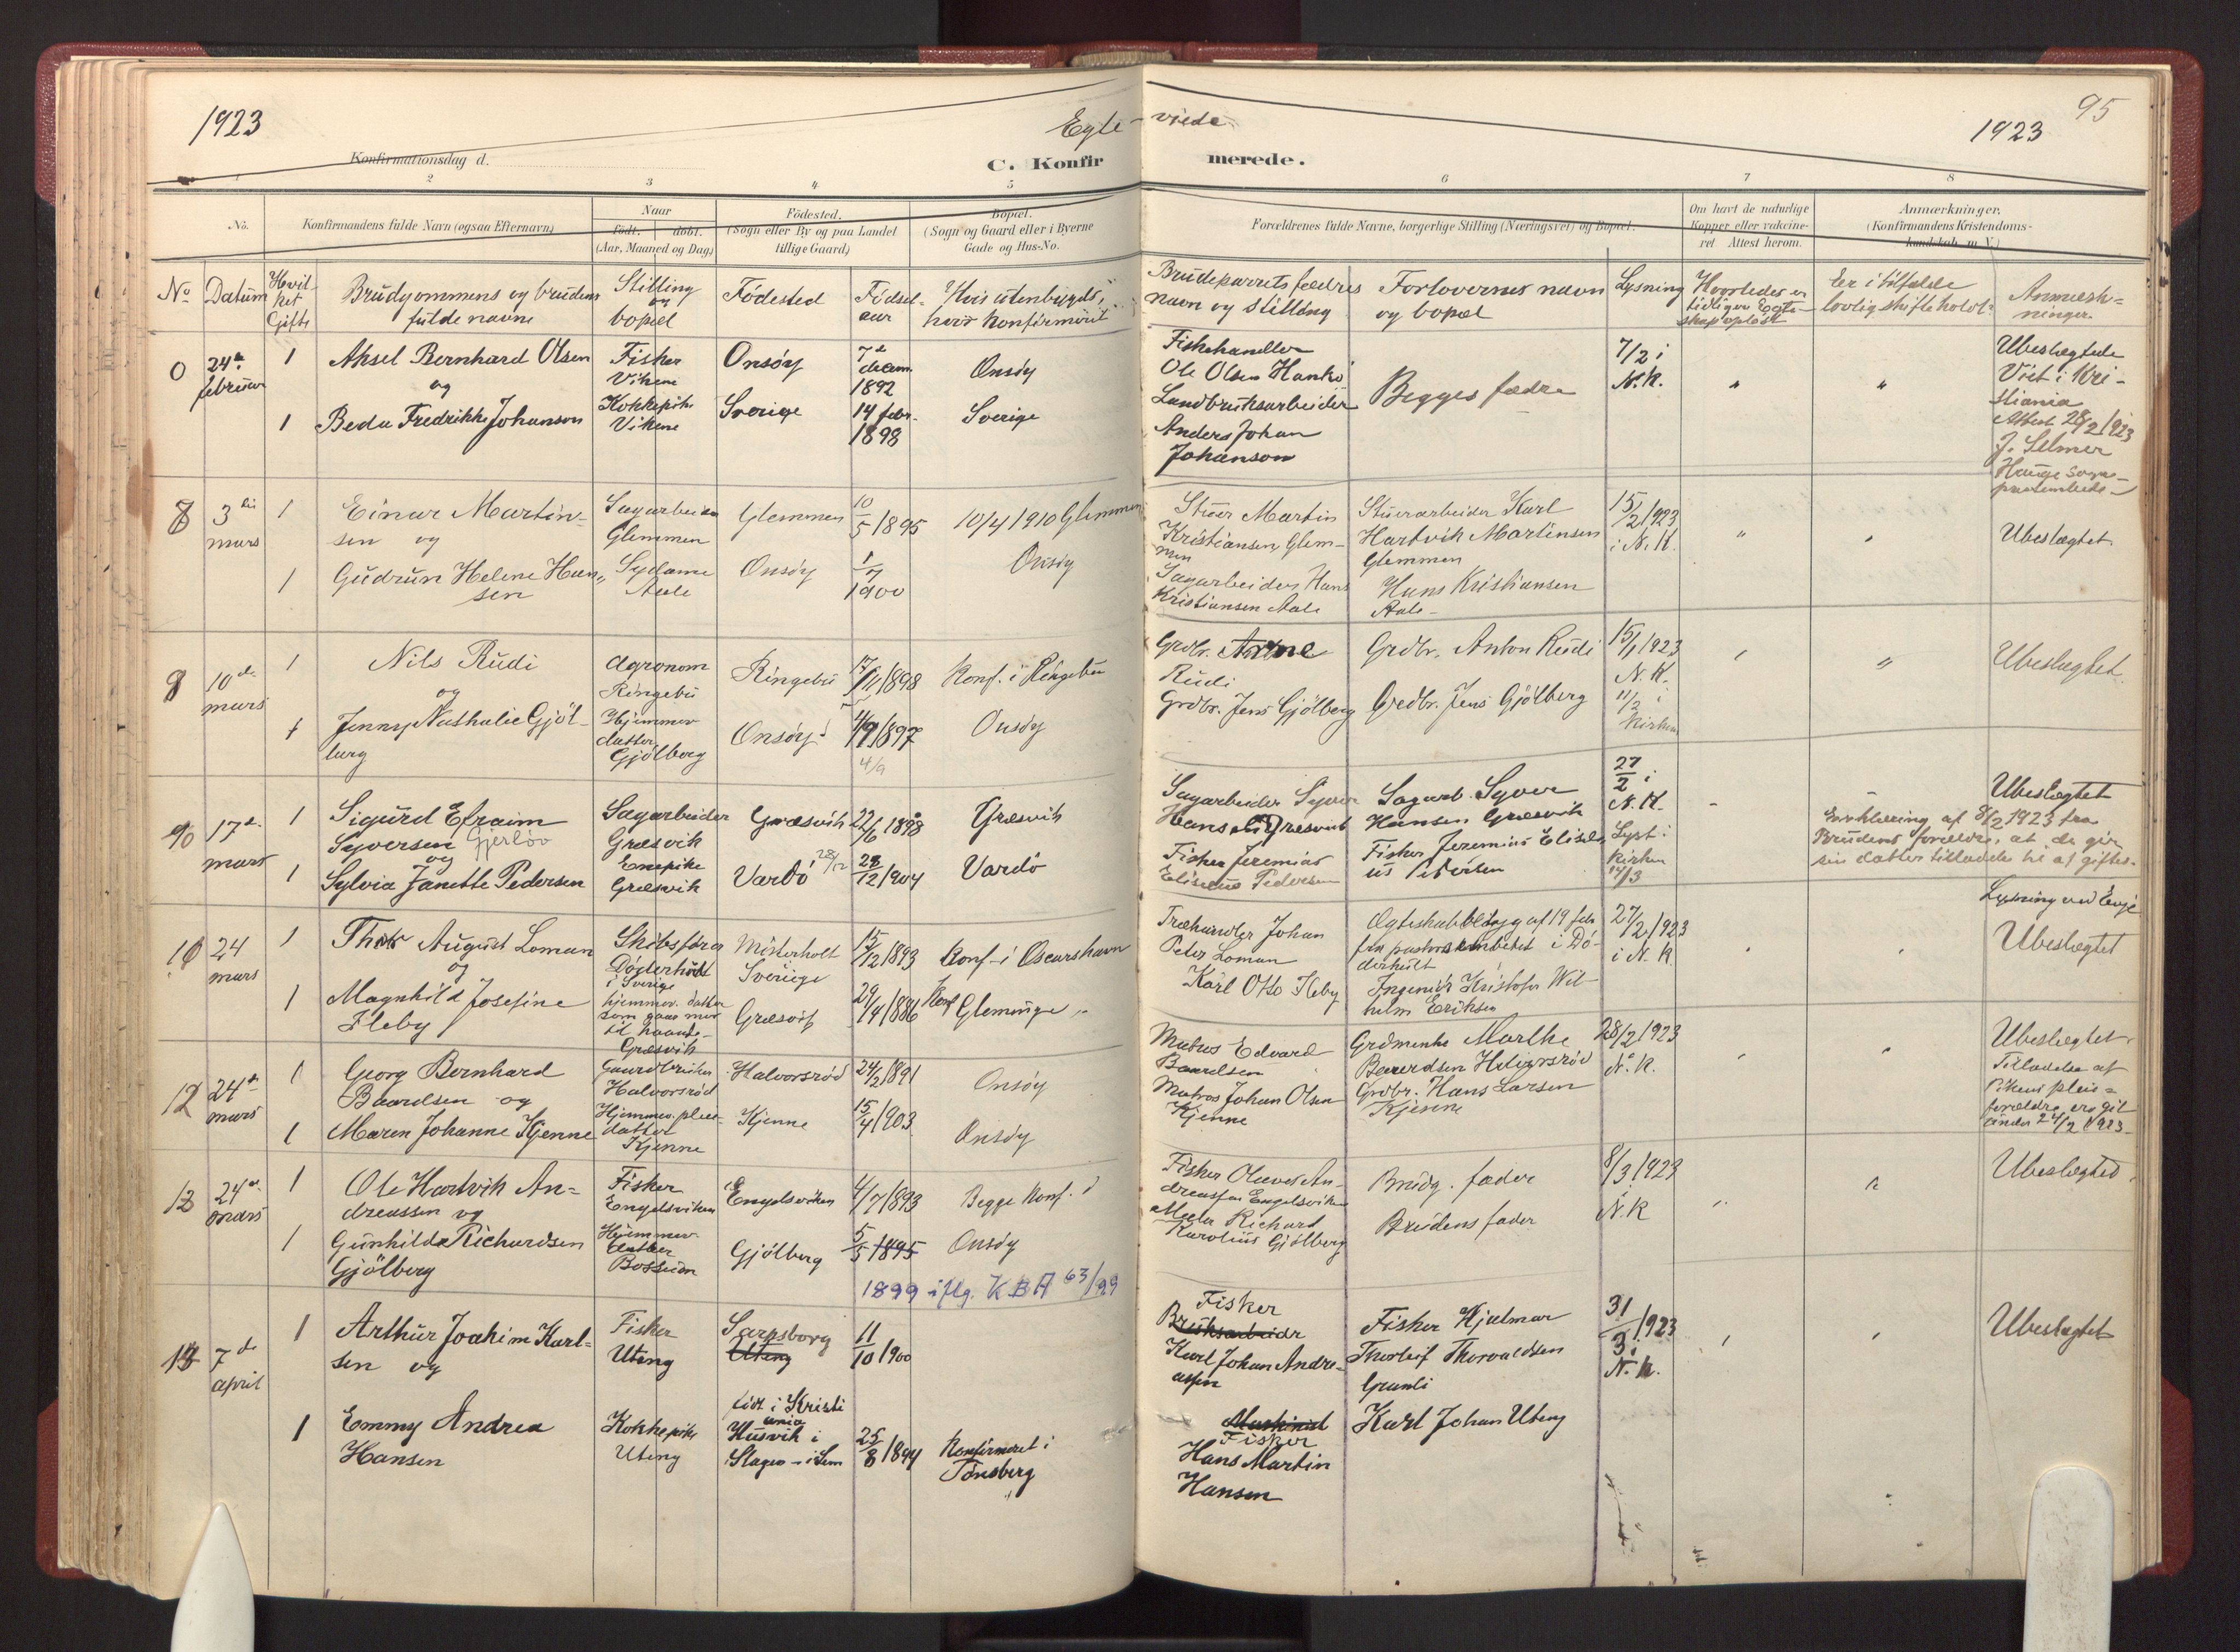 1923
Egte-viede
1923
95
Konfirmationsdag d.
C. Konfirmerede.
1 2 3 4 5 6 7 8
No.
Konfirmandens fulde Navn (ogsaa Efternavn)
Naar
født. døbt.
(Aar, Maaned og Dag)
Fødested.
(Sogn eller By og paa Landet
tillige Gaard)
Bopæl.
(Sogn og Gaard eller i Byerne
Gade og Hus-No.
Forældrenes fulde Navne, borgerlige Stilling (Næringsvei) og Bopæl.
Om havt de naturlige
Kopper eller vakcine-
ret Attest herom.
Anmærkninger.
(Konfirmandens Kristendoms-
kundskab m. V.)
No
Datum
Hvil-
ket
Gifte
Brudgommens og brudens
fulde navne
Stilling
og
bopæl
Födested
Födsel-
aar
Hvis utenbygds,
hvor konfirmert
Brudeparrets fædres
navn og stilling
Forlovernes navn
og bopæl
Lysning
Hvorledes er
tidligere Egte-
skap opløst
Er i tilfælde
lovlig skifte holdt
Anmerk-
ninger.
0
24de
februar
1
Aksel Bernhard Olsen
og
1
Beda Fredrikke Johanson
Fisker
Vikene
Kokkepike
Vikene
Onsöy
Sverige
7de
decem.
1892
14 febr.
1898
Onsöy
Sverige
Fiskehandler
Ole Olsen Hankö
Landbruksarbeider
Anders Johan
Johanson
Begges fædre
7/2 i
N.K.
"
"
Ubeslegtede
Viet i Kri-
stiania
Attest 28/2 1923
J. Selmer
Hauge sogne-
8
3die
mars
1
Einar Martin-
sen og
1
Gudrun Helene Han-
sen
Sagarbeider
Glemmen
Sydame
Aale
Glemmen
Onsöy
10/5 1895
1/7
1900
10/4 1910 Glemmen
Onsöy
Stuer Martin
Kristiansen Glem-
men
Sagarbeider Hans
Kristiansen Aale
Stuerarbeider Karl
Hartvik Martinsen
Glemmen
Hans Kristiansen
Aale
15/2 1923
i N.K.
"
"
Ubeslegtet.
9
10de
mars
1
Nils Rudi
og
1
Jenny Nathalie Gjöl-
berg
Agronom
Ringebu
Hjemmev.
datter
Gjölberg
Ringebu
Onsöy
17/11 1898
4/9 1897
4/9
Konf. i Ringebu
Onsöy
Grdbr. Arne
Rudi
Grdbr. Jens Gjölberg
Grdbr. Anton Rudi
Grdbr. Jens Gjölberg
15/1 1923
N.K.
11/3 i
Kirken
"
"
Ubeslegtet
10
17de
mars
1
Sigurd Efraim
Syversen Gjerløv
og
1
Sylvia Janette Pedersen
Sagarbeider
Græsvik
Enepike
Græsvik
Græsvik
Vardö 28/12
22/6 1898
28/12 1904
Græsvik
Vardö
Sagarbeider Syver
Hansen Græsvik
Fisker Jeremias
Eliseus Pedersen
Sagarb. Syver
Hansen Græsvik
Fisker Jeremias Elise-
us Pedersen
27/2 i
N.K.
Lyst i
Kirken
11/3
Erklæring af 8/2 1923 fra
Brudens forældre, at de gir
sin datter tilladelse til at giftes.
Ubeslegtet
11
24
mars
1
August Loman
og
1
Magnhild Josefine
Fleby
Skibsförer
i Sverige
hjemmev. datter
som gaar mor
til haande
Græsvik
Misterhult
Sverige
Græsvik
15/12 1893
29/4 1886
Konf. i Oscarshavn
Konf Glemminge
Træhandler Johan
Peter Loman
Karl Otto Fleby
Ægteskabsbetyg af 19 febr
fra pastorsembetet i Dö-
derhult
Ingeniör Kristofer Wil-
helm Eriksen
27/2 1923
i N.K.
"
"
Lysning ved
Ubeslegtet
12
24de
mars
1
Georg Bernhard
Baardsen og
1
Maren Johanne Kjenne
Gaardbruker
Halvorsröd
Hjemmev. pleie-
datter
Kjenne
Halvorsröd
Kjenne
24/2 1891
15/4 1903
Onsöy
Onsöy
Matros Edvard
Baardsen
Matros Johan Olsen
Kjenne
Grdmenke Marthe
Baardsen
Grdbr. Hans Larsen
Kjenne
28/2 1923
N.K.
"
"
Ubeslegtet
Tilladelse af
Pikens pleie-
forældre er git
under 24/2 1923
13
24de
mars
1
Ole Hartvik An-
dreassen og
1
Gunhilda Richardsen
Gjölberg
Fisker
Engelsviken
Hjemmev.
datter
Engelsviken
Gjölberg
4/7 1893
5/5 1895
1899 iflg. KBA 63/99
Begge Konf. i
Onsöy
Fisker Oluves An-
dreassen Engelsviken
Richard
Karolius Gjölberg
Brudg. fader
Brudens fader
8/3 1923
N.K
"
"
Ubeslegted
14
7de
april
1
Arthur Joakim Karl-
sen og
1
Emmy Andrea
Hansen
Fisker
Uteng
Kokkepike
Uteng
Sarpsborg
Uteng
i Kristi
ania
Husvik i
Slagen i Sem
11/10 1900
25/8 1894
Konfirmeret i
Tönsberg
Fisker
Bruksarbeider
Karl Johan Andre-
assen
Maskinist
Fisker
Hans Martin
Hansen
Fisker Hjalmar
Thorleif Thorvaldsen
Granli
Karl Johan Uteng
31/3 1923
i
N.K.
"
"
Ubeslegtet